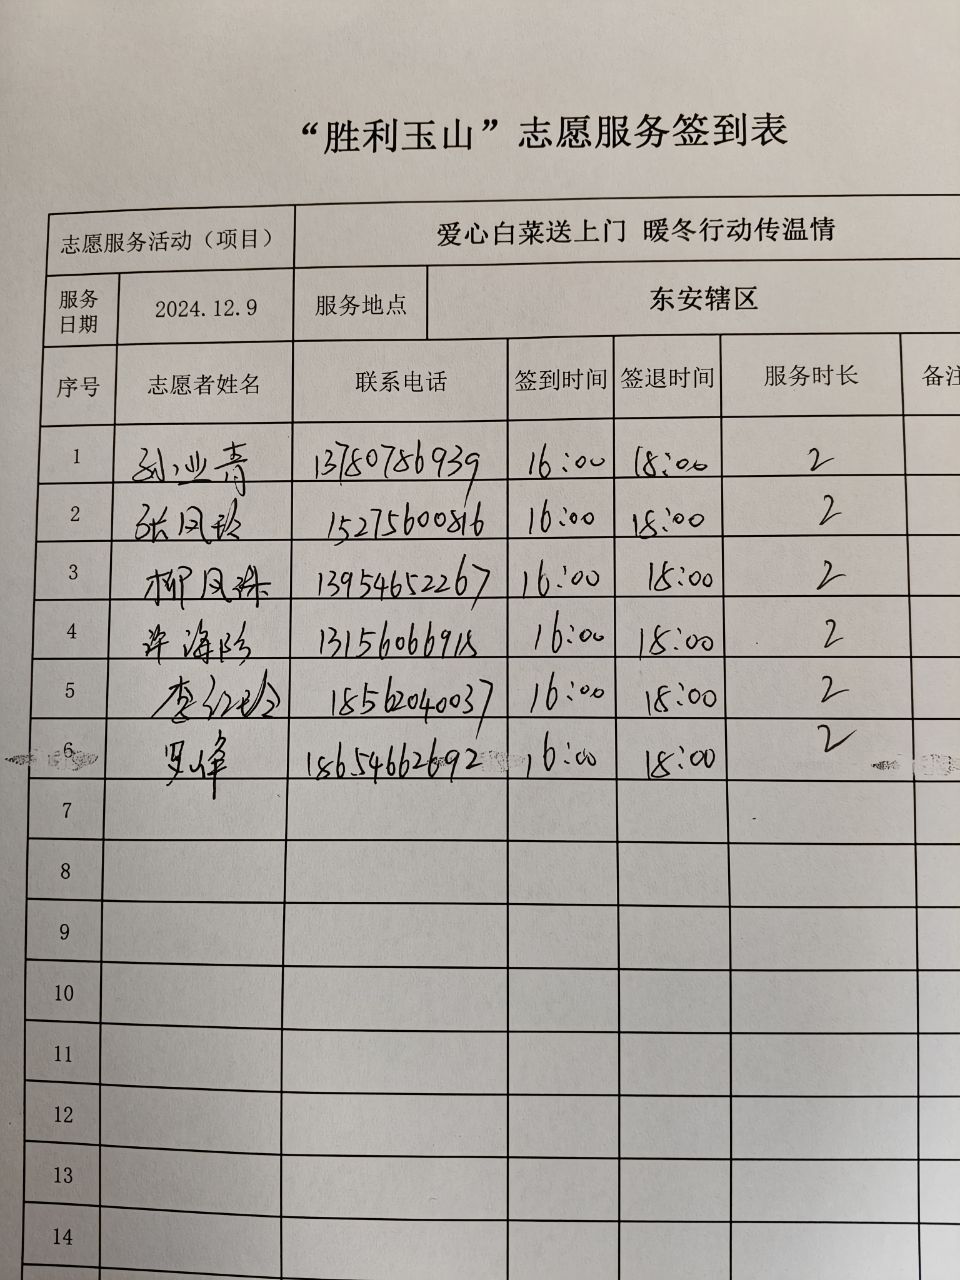 “胜利玉山”志愿服务签到表
志愿服务活动（项目） 爱心白菜送上门 暖冬行动传温情
服务日期 2024.12.9 服务地点 东安辖区
序号 志愿者姓名 联系电话 签到时间 签退时间 服务时长 备注
1 孙业青 13780786939 16:00 18:00 2
2 张凤玲 15275600816 16:00 18:00 2
3 柳凤珠 13954652267 16:00 18:00 2
4 许海珍 13156066918 16:00 18:00 2
5 李红玲 18562040037 16:00 18:00 2
6 罗峰 18654662692 16:00 18:00 2
7
8
9
10
11
12
13
14